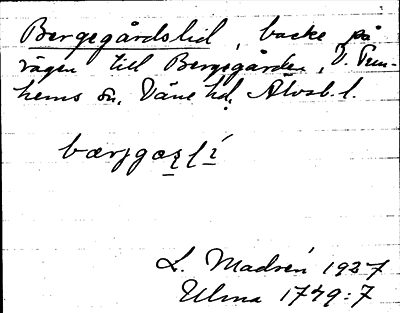 Bergegårdslid, backe på
vägen till Bergegården, V. Tun-
hems sn, Väne hd. Älvsb. l.
L. Madsén 1937
Ulma 1779:7